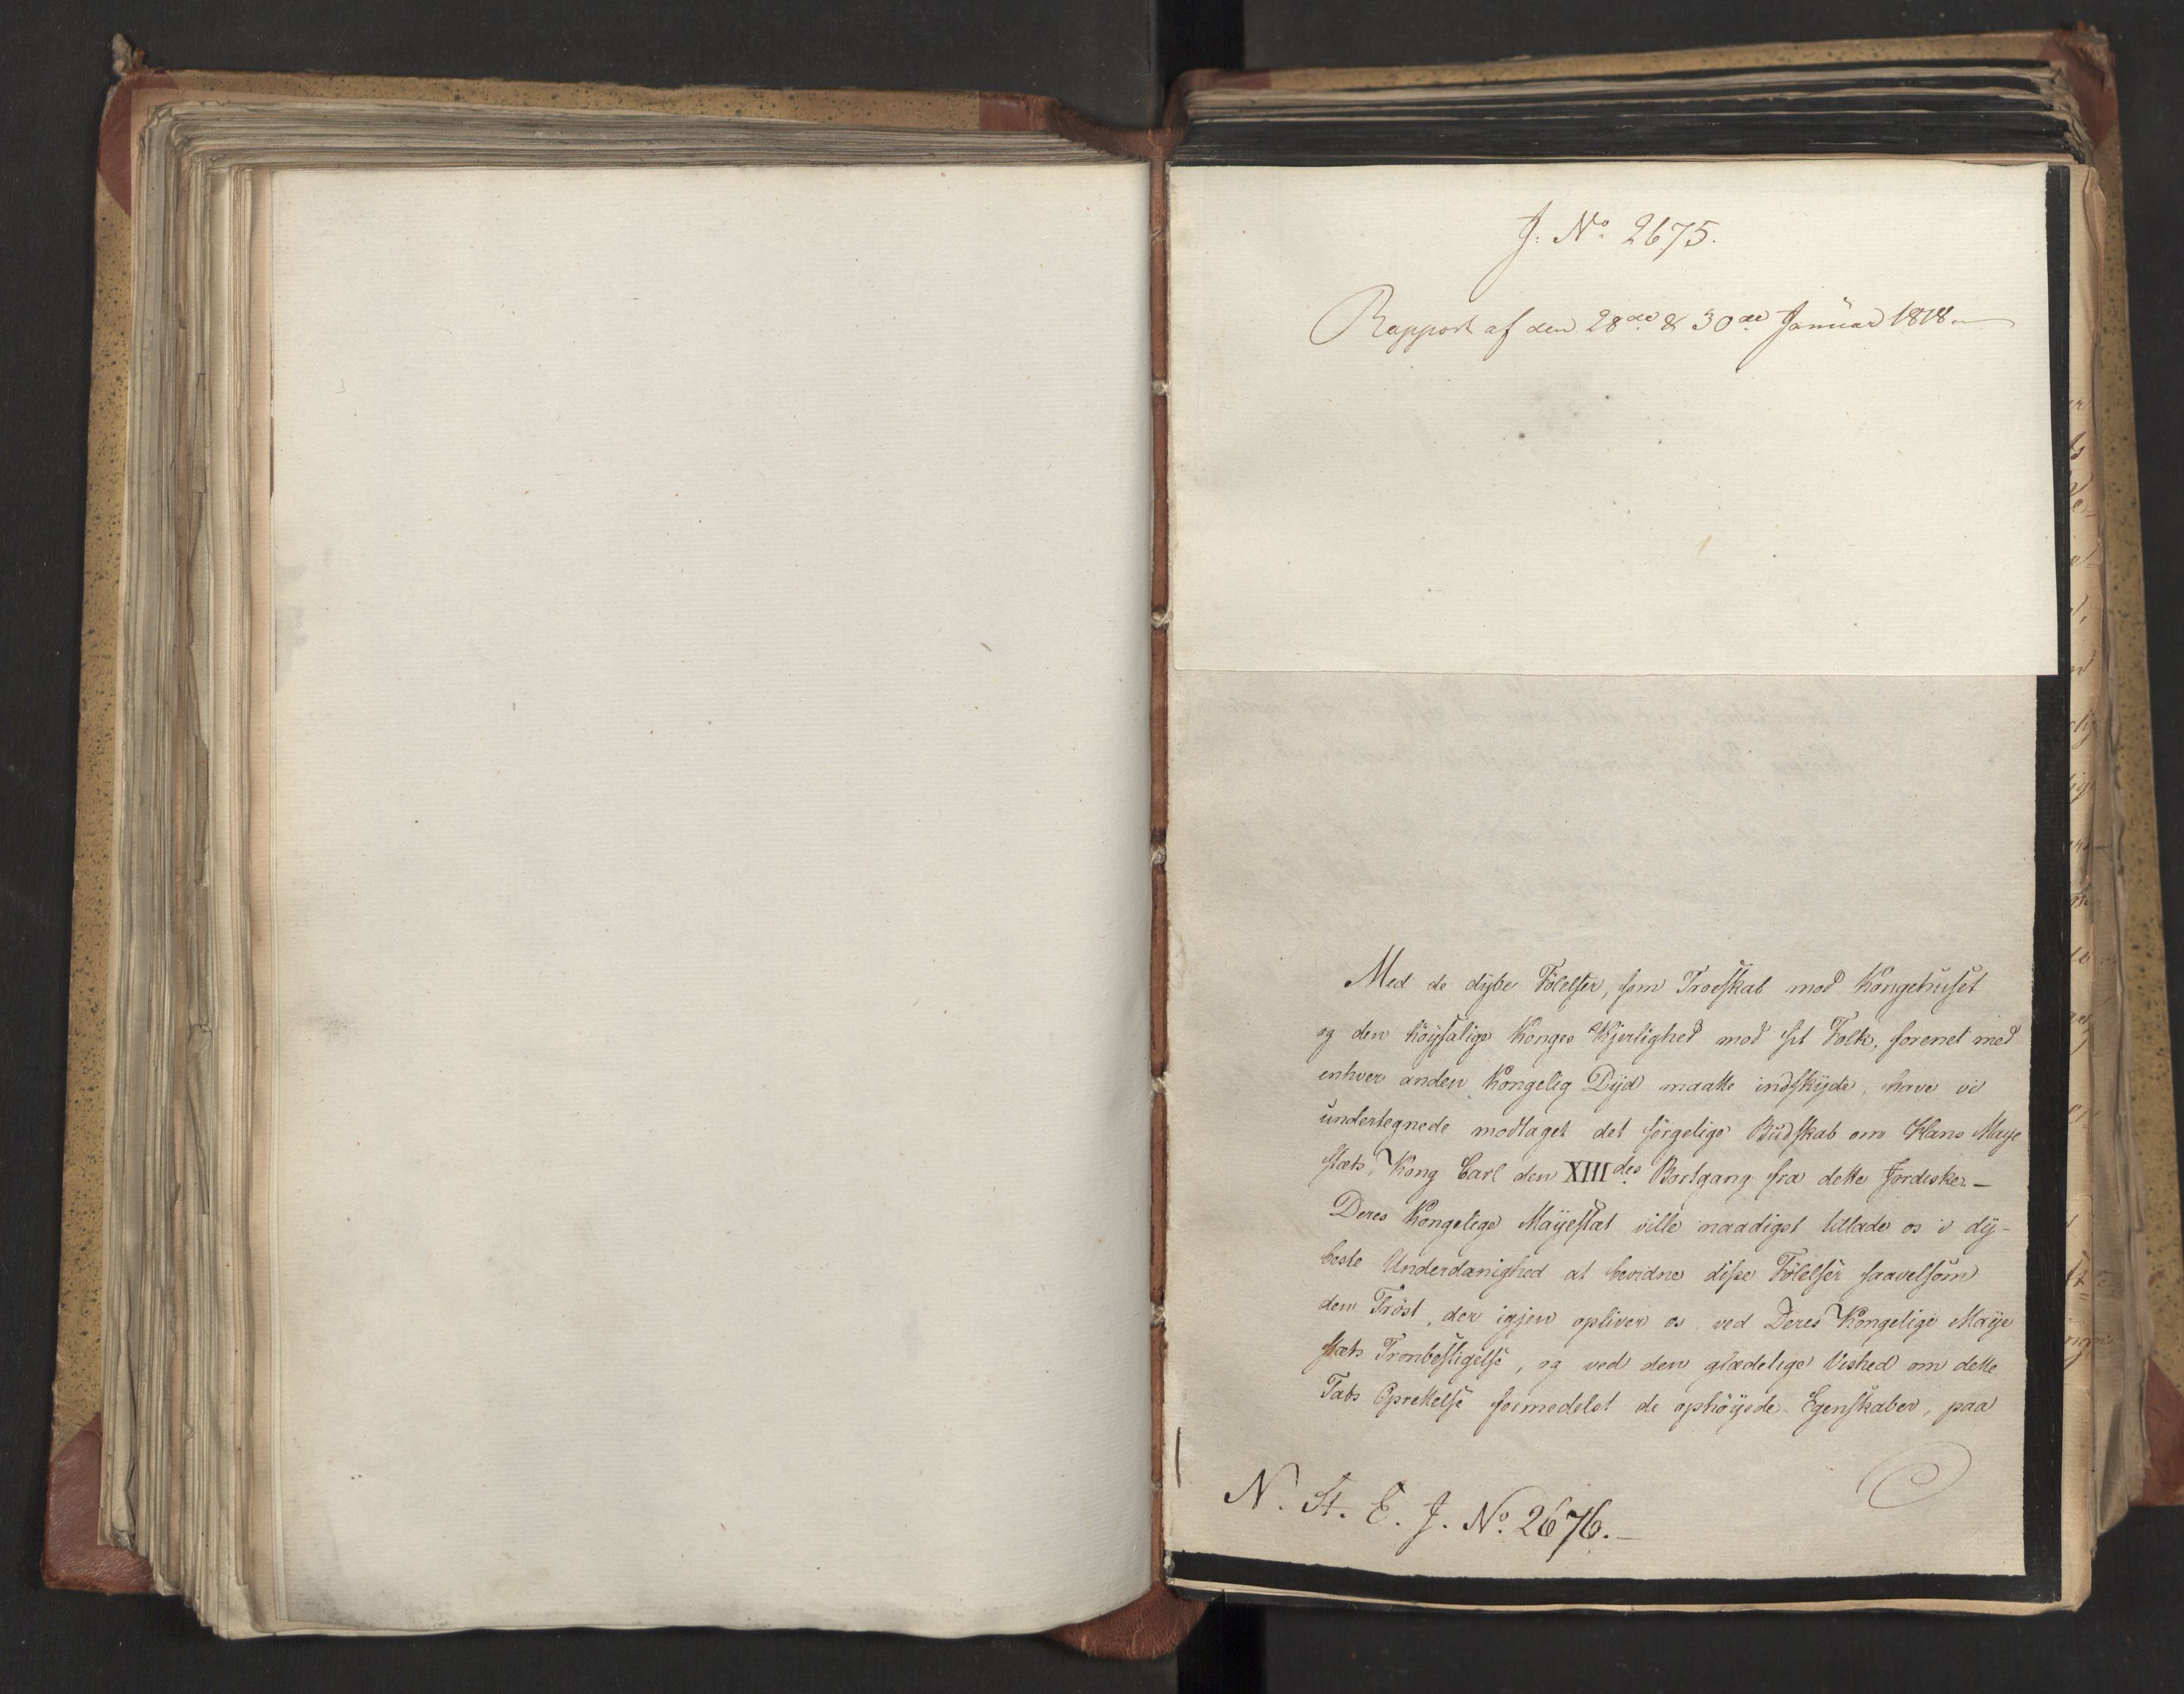 J: No. 2675.
Rapport af den 28de & 30de Januar 1818
Med de dybe Fölelser, som Troeskab mod Kongehuset
og den höysalige Konges Kjerlighed mod sit Folk, forenet med
enhver anden Kongelig Dyd maatte indskyde, have vi
undertegnede modtaget det sörgelige Budskab om Hans Maye
stæts, Kong Carl den XIIIdes Bortgang fra dette Jordiske. —
Deres Kongelige Mayestæt ville naadigst tillade os i dy-
beste Underdanighed at bevidne disse Fölelser saavelsom
den Tröst, der igjen opliver os ved Deres Kongelige Maye
stæts Tronbestigelse, og ved den glædelige Vished om dette
Tabs Oprettelse formedelst de ophöyede Egenskaber, paa
N. St. E. J. No. 2676. —